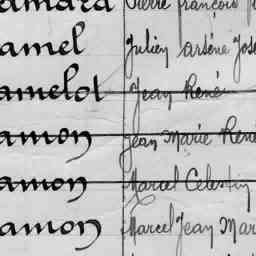 amara Pierre françois
amel Julien arsène José
amelot Jean René
amon Jean Marie René
amon Marcel Célestin
amon Marcel Jean Mar